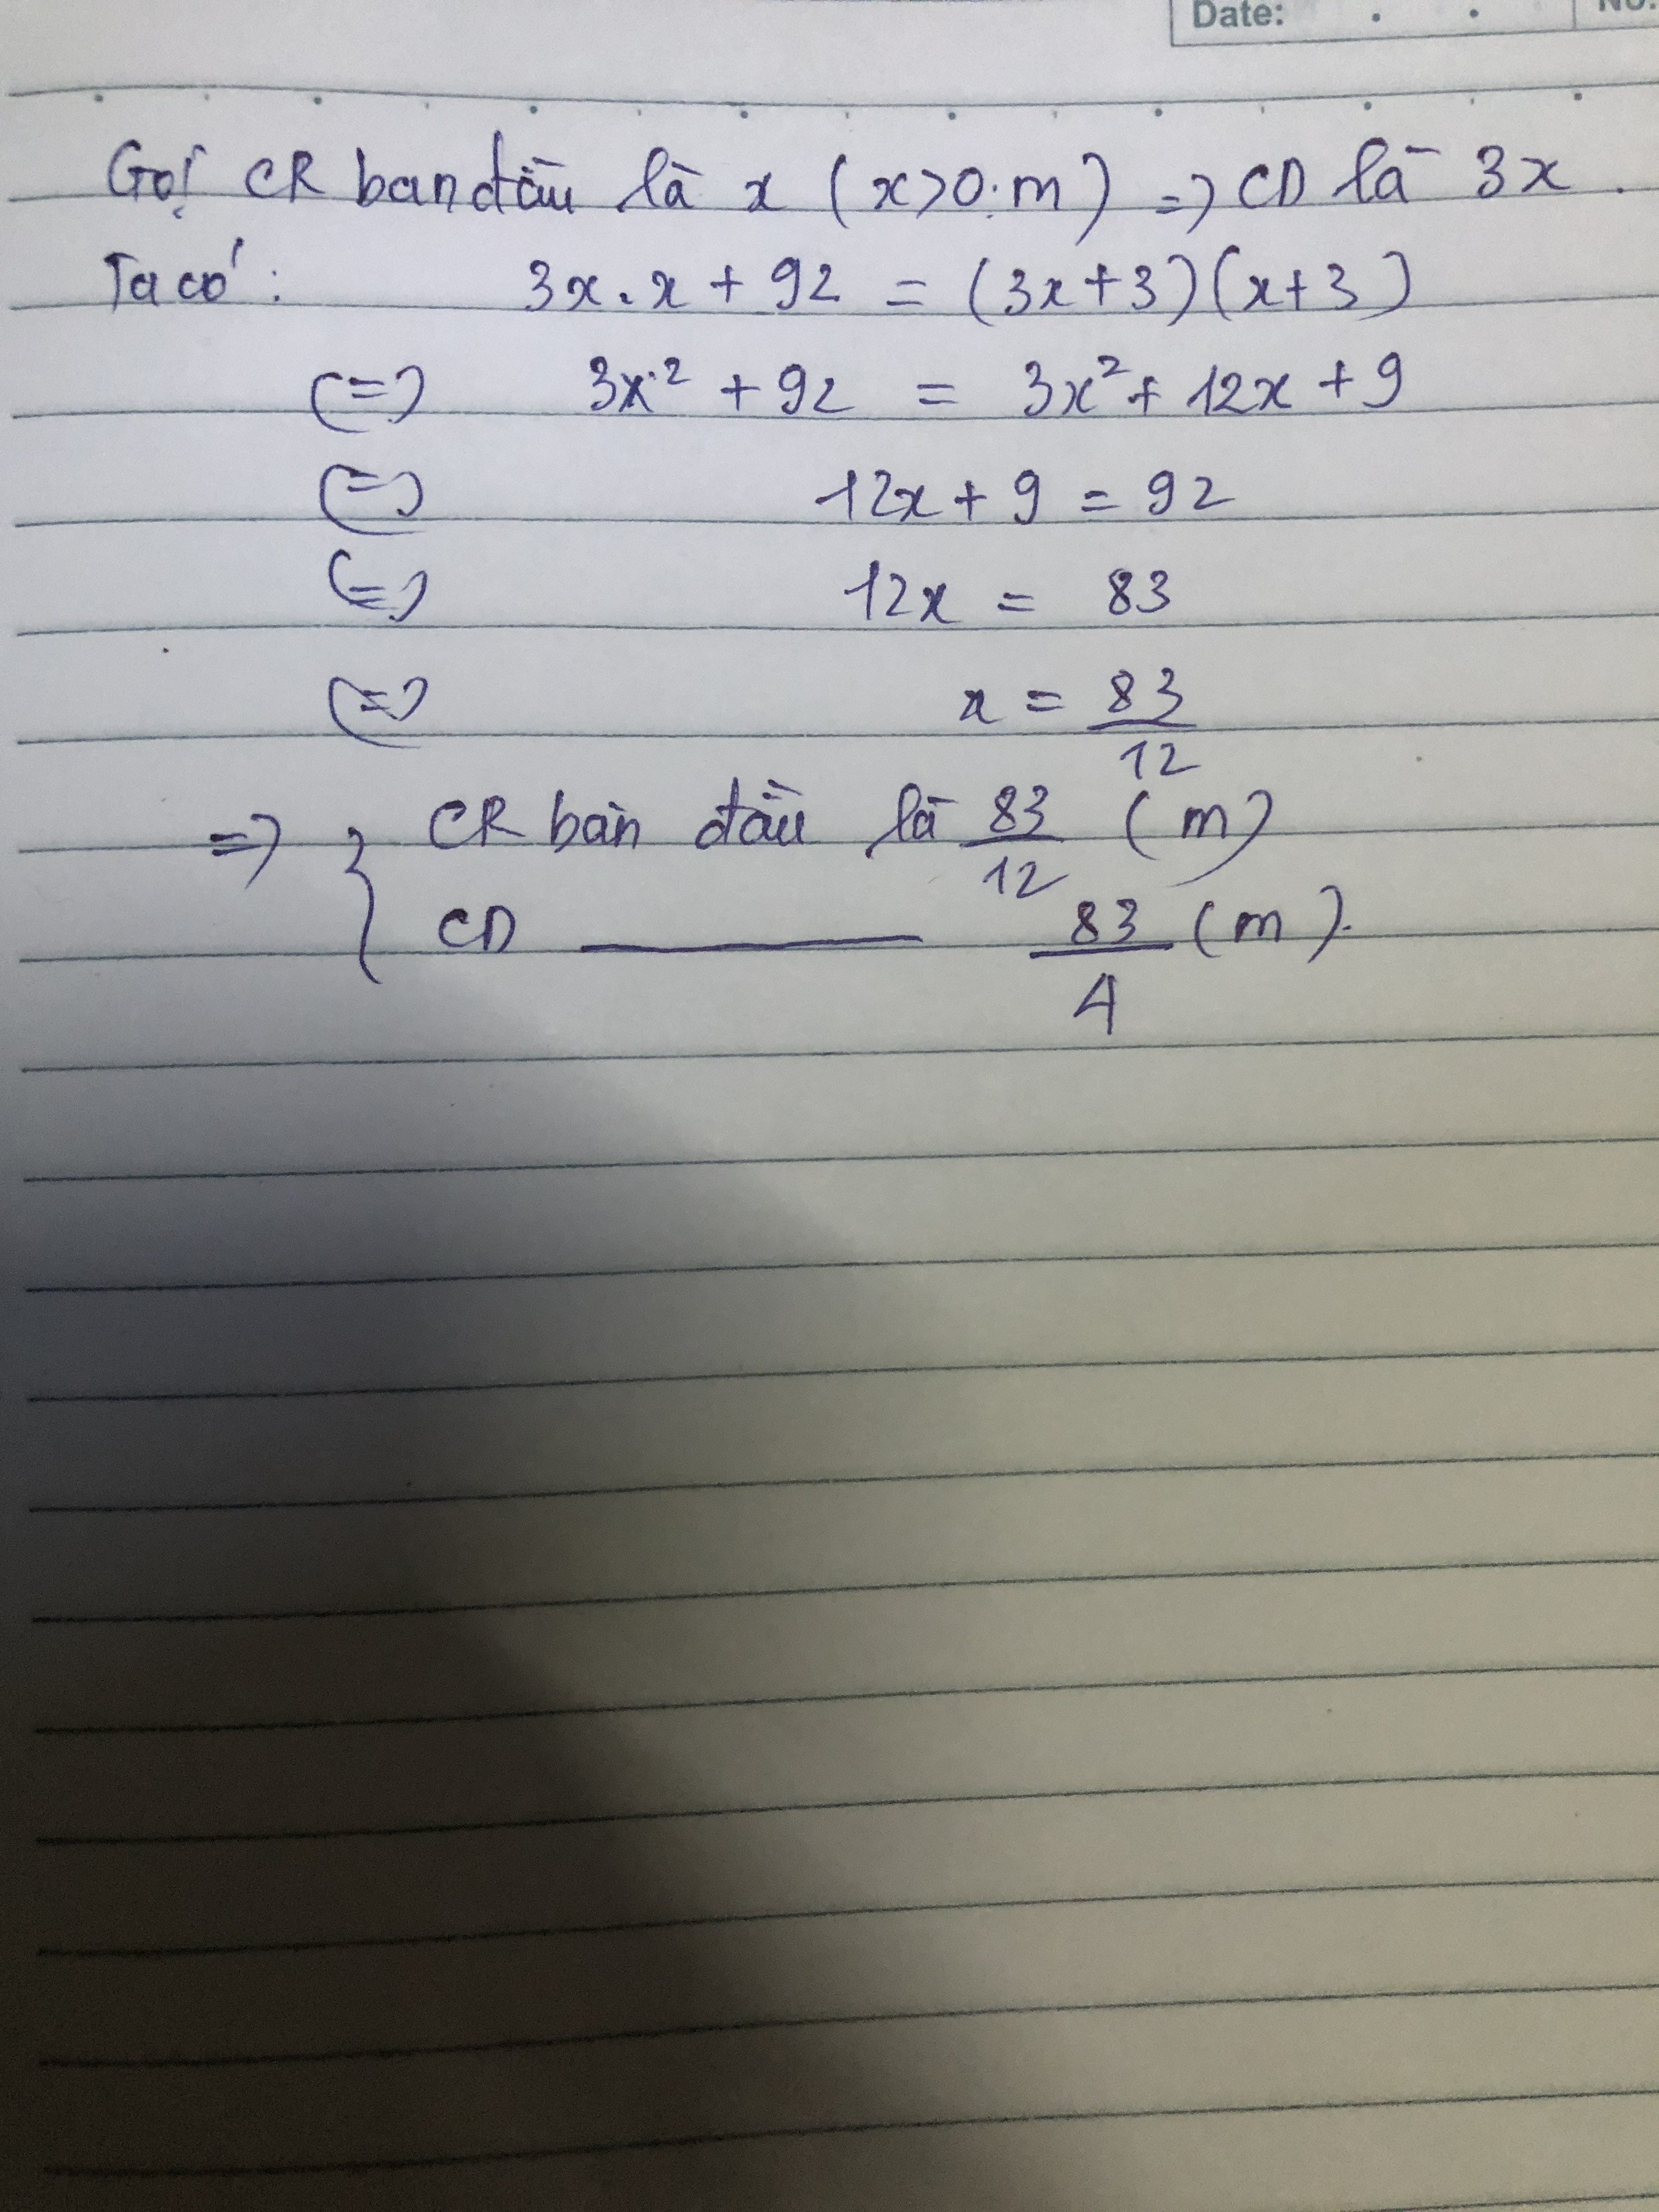 Date: No:
Gọi CR ban đầu là x (x>0; m) => CD là 3x.
Ta có: 3x.x + 92 = (3x+3)(x+3)
(=) 3x² + 92 = 3x² + 12x + 9
(=) 12x + 9 = 92
(=) 12x = 83
(=) x = 83/12
=> { CR bàn đầu là 83/12 (m)
CD ——— 83/4 (m).